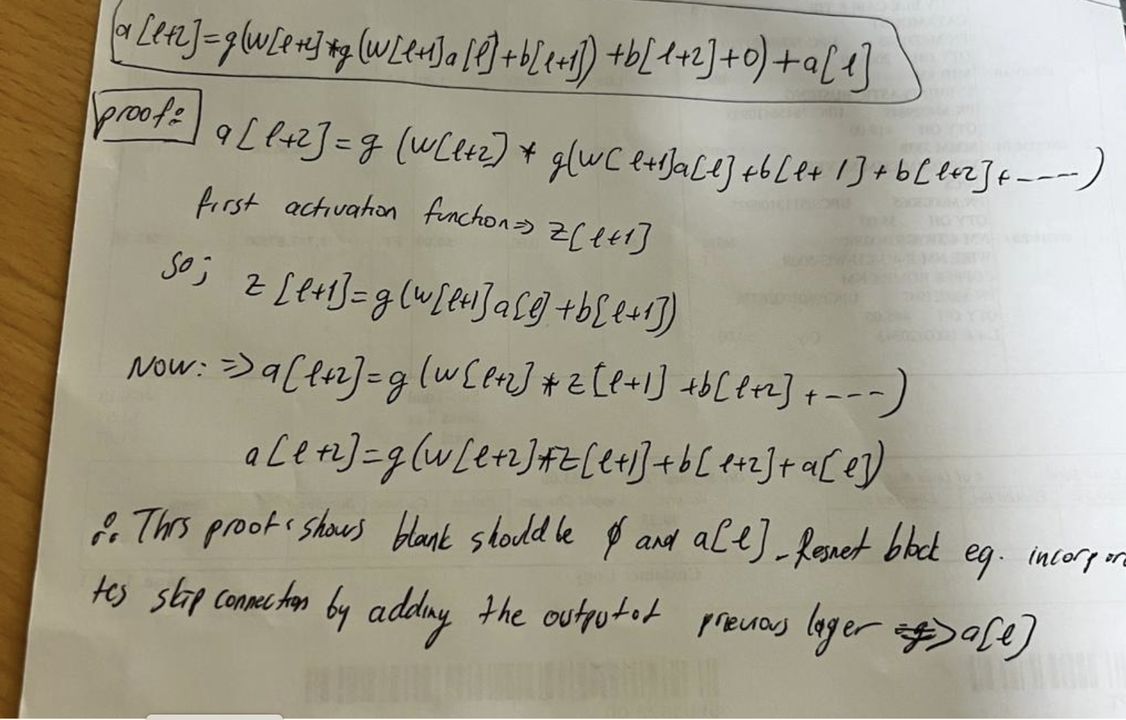 a[l+2]=g(w[l+2]*g(w[l+1]a[l]+b[l+1])+b[l+2]+0)+a[l]
proof:
a[l+2]=g(w[l+2)*g(w[l+1]a[l]+b[l+1]+b[l+2]+----)
first activation function⇒z[l+1]
so;
z[l+1]=g(w[l+1]a[l]+b[l+1])
Now:⇒a[l+2]=g(w[l+2]*z[l+1]+b[l+2]+---)
a[l+2]=g(w[l+2]*z[l+1]+b[l+2]+a[l])
∴ This proof shows blank should be ϕ and a[l]-Resnet block eq. incorpor
tes skip connection by adding the output of previous layer ⇒a[l]